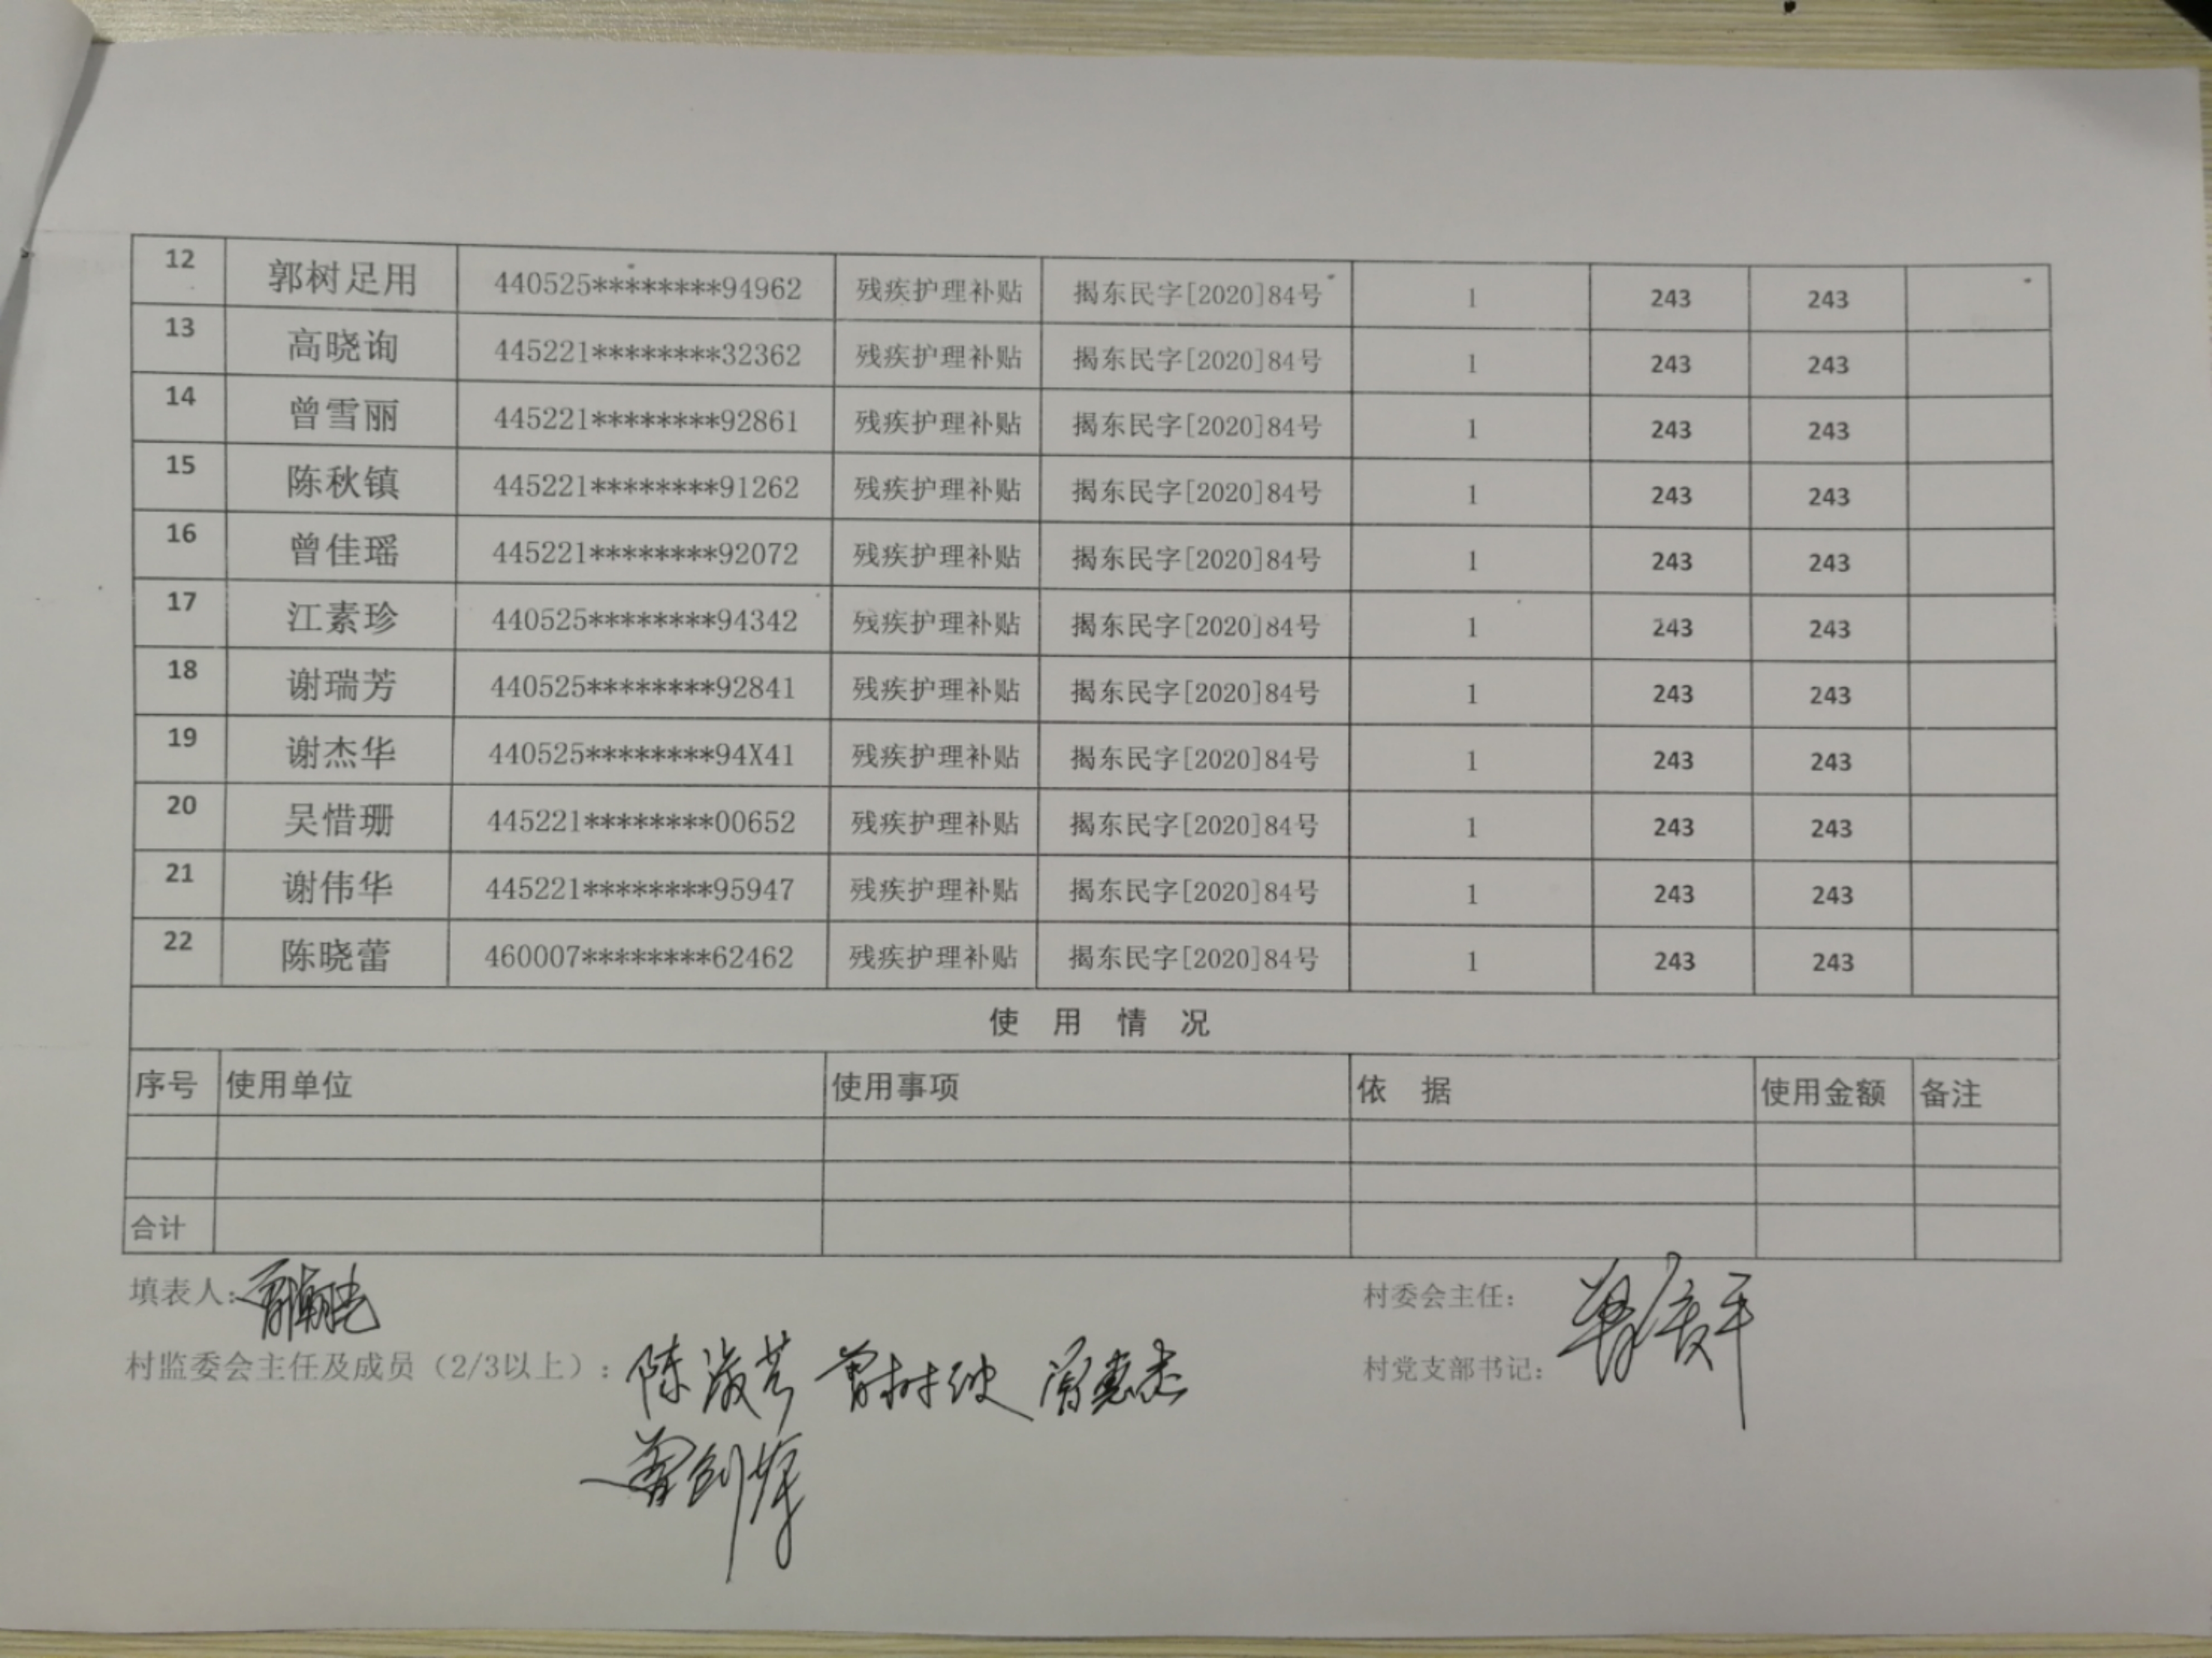 12 郭树足用 440525********94962 残疾护理补贴 揭东民字[2020]84号 1 243 243
13 高晓询 445221********32362 残疾护理补贴 揭东民字[2020]84号 1 243 243
14 曾雪丽 445221********92861 残疾护理补贴 揭东民字[2020]84号 1 243 243
15 陈秋镇 445221********91262 残疾护理补贴 揭东民字[2020]84号 1 243 243
16 曾佳瑶 445221********92072 残疾护理补贴 揭东民字[2020]84号 1 243 243
17 江素珍 440525********94342 残疾护理补贴 揭东民字[2020]84号 1 243 243
18 谢瑞芳 440525********92841 残疾护理补贴 揭东民字[2020]84号 1 243 243
19 谢杰华 440525********94X41 残疾护理补贴 揭东民字[2020]84号 1 243 243
20 吴惜珊 445221********00652 残疾护理补贴 揭东民字[2020]84号 1 243 243
21 谢伟华 445221********95947 残疾护理补贴 揭东民字[2020]84号 1 243 243
22 陈晓蕾 460007********62462 残疾护理补贴 揭东民字[2020]84号 1 243 243
使 用 情 况
序号 使用单位 使用事项 依 据 使用金额 备注
合计
填表人： 村委会主任：
村监委会主任及成员（2/3以上）： 村党支部书记：